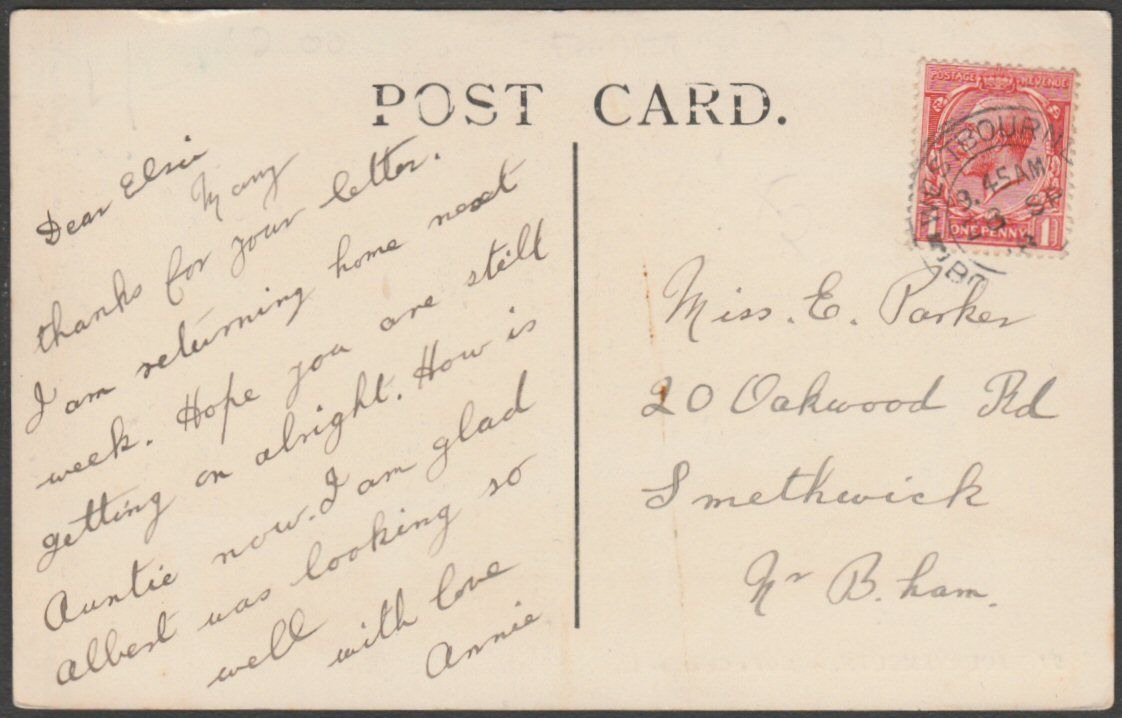 POST CARD.
Dear Elsie
Many
thanks for your letter.
I am returning home next
week. Hope you are still
getting on alright. How is
Auntie now. I am glad
Albert was looking so
well with love
Annie
POSTAGE REVENUE
ONE PENNY
1 1
WESTBOURNE
9.45AM
23 SE
Miss. E. Parker
20 Oakwood Rd
Smethwick
Nr B.ham.